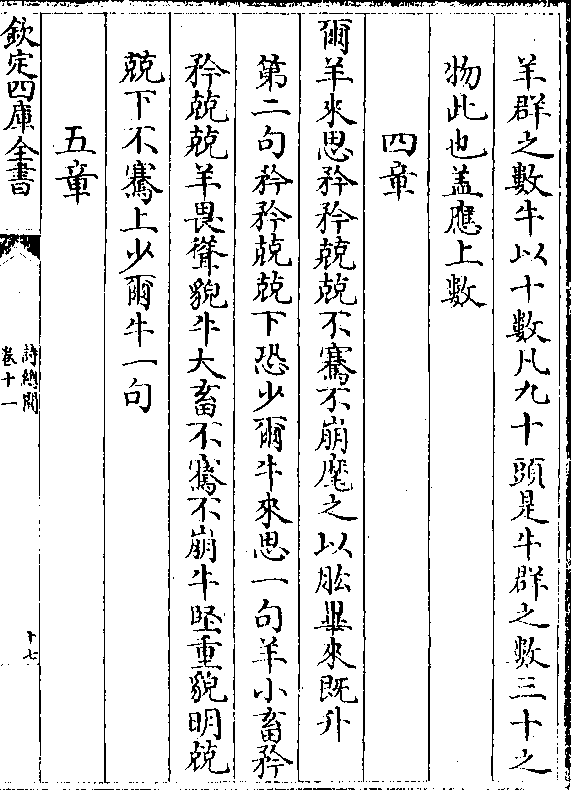 羊群之數牛以十數凡九十頭是牛群之數三十之
物此也盖應上數
四章
爾羊來思矜矜兢兢不騫不崩麾之以肱畢來既升
第二句矜矜兢兢下恐少爾牛來思一句羊小畜矜
矜兢兢羊畏聳貌牛大畜不騫不崩牛堅重貌明兢
兢下不騫上少爾牛一句
五章
欽定四庫全書
詩總聞
卷十一
十七